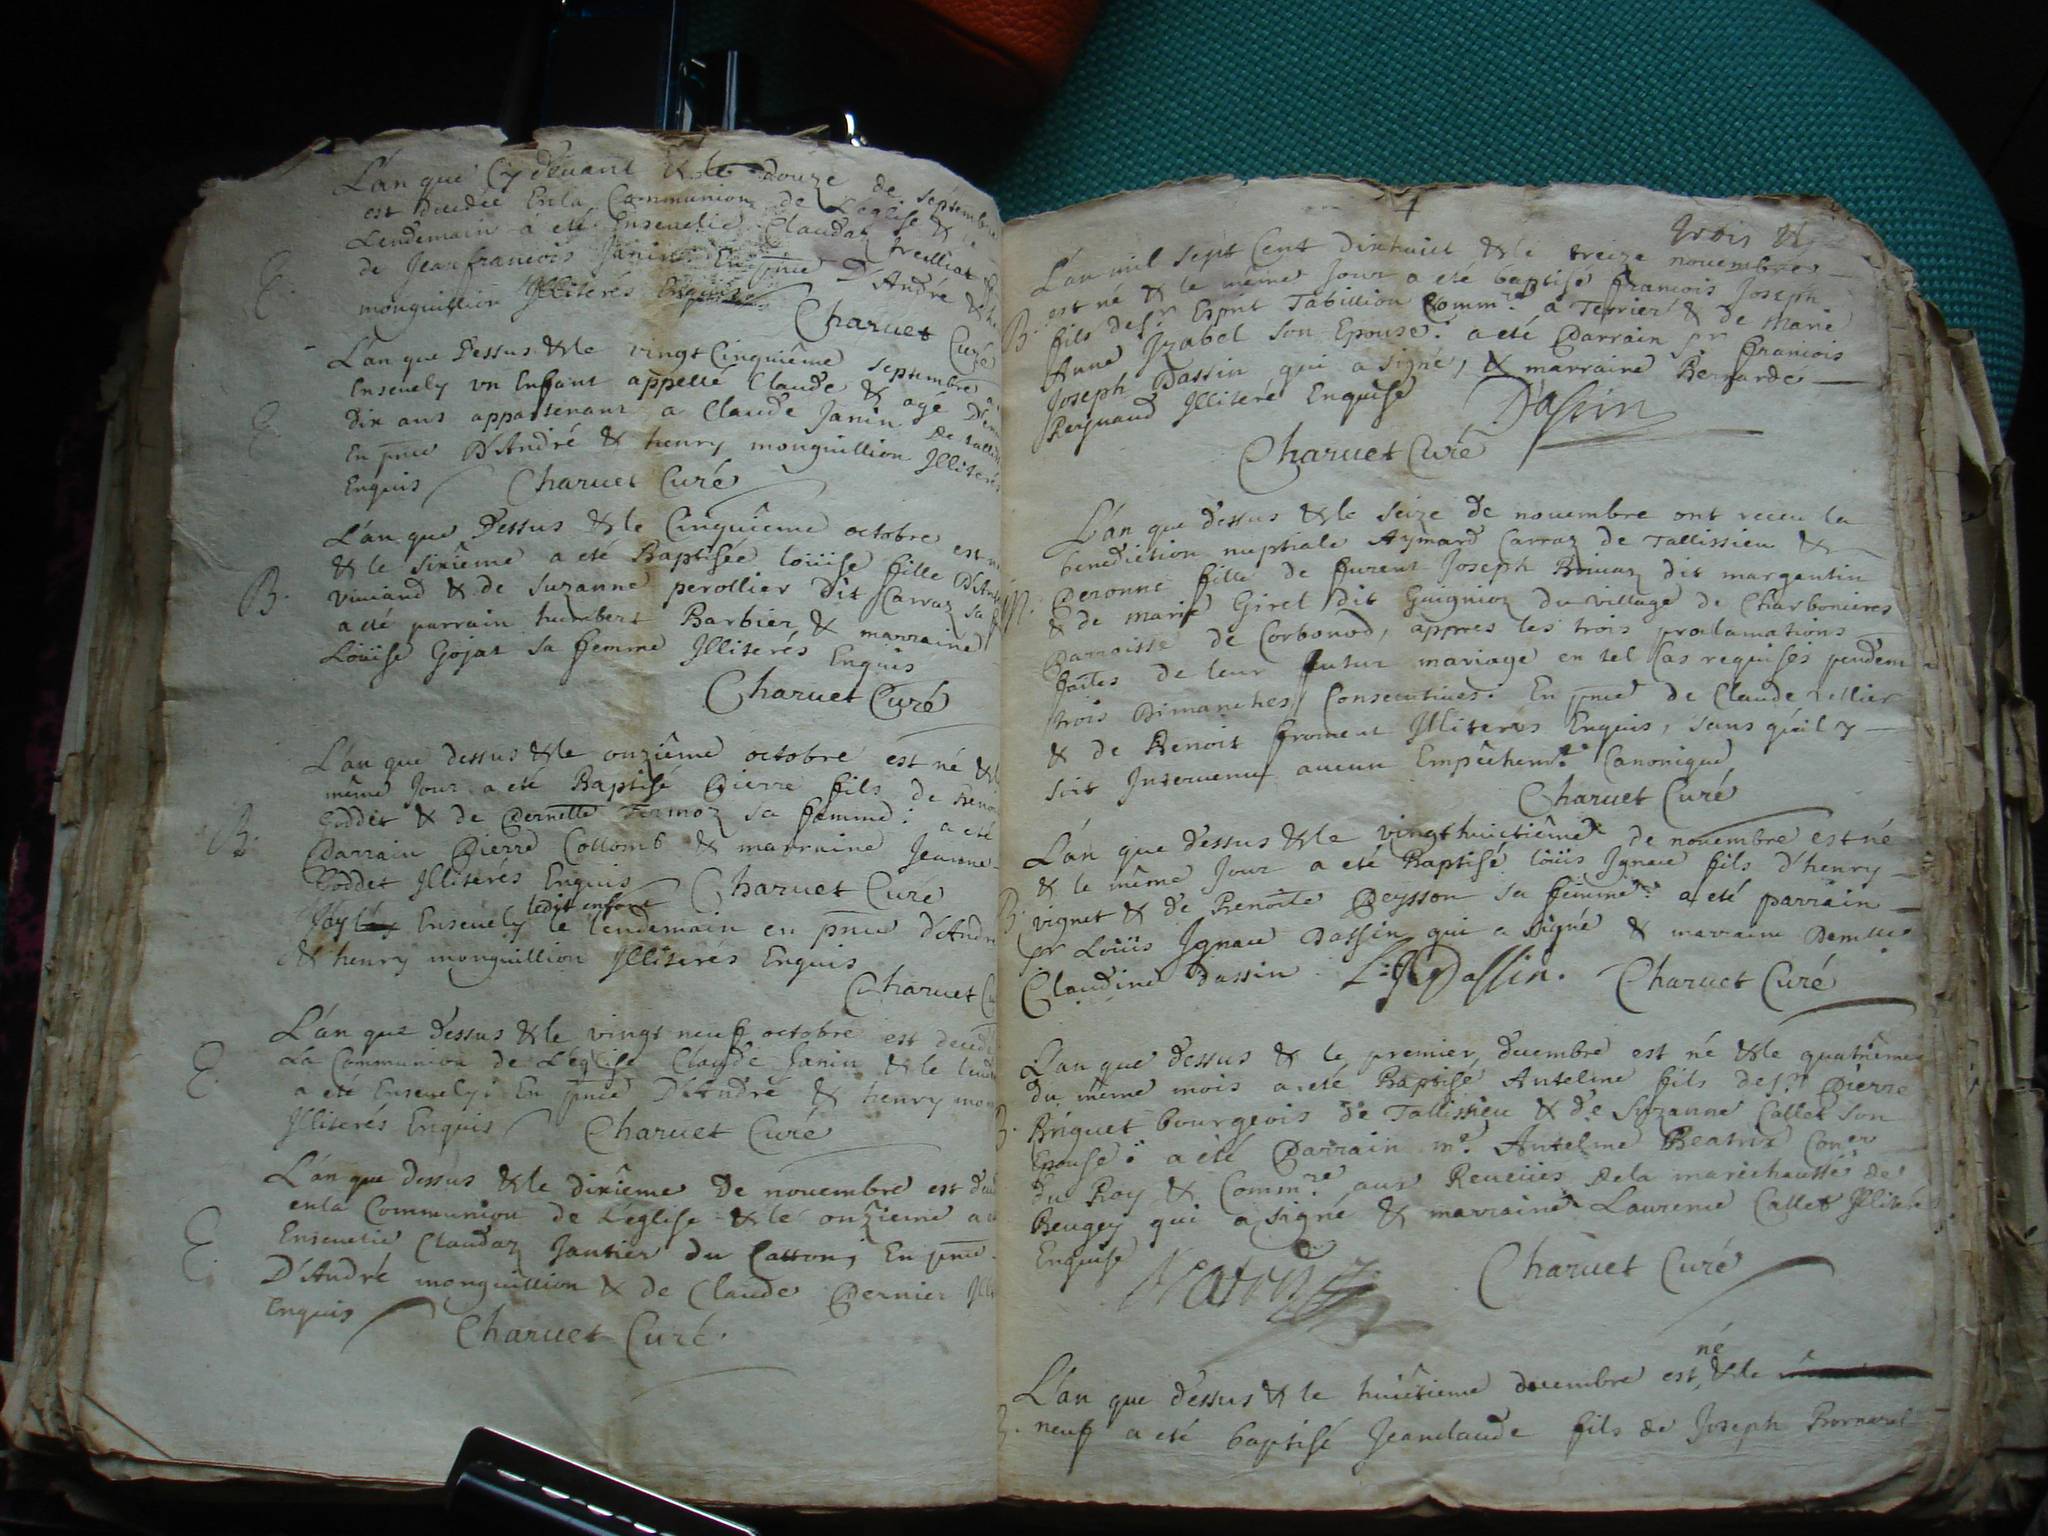 L'an que Cy devant & le douze de septembre
est decedée En la Communion de L'eglise & le
Lendemain a eté Ensevelie Claudaz
de Jeanfrancois Janin En pñce D'André &
E.
monguillion Illiterés Enquis
Charvet Curé
L'an que Dessus & le vingt Cinquiême septembre
Ensevely vn Enfant appellé Claude & agé
E.
dix ans appartenant a Claude Janin
En pñce D'André & henry monguillion Illiterés
Enquis Charvet Curé
L'an que Dessus & le Cinquiême octobre est
& le sixiême a eté Baptisée loüise fille
B.
viviand & de suzanne perollier dit Carraz sa
a eté parrain humbert Barbier & marraine
Loüise Gojat sa femme Illiterés Enquis
Charvet Curé
L'an que dessus & le onziême octobre est né &
même Jour a eté Baptisé Pierre fils de
Goddet & de Pernette sa femme: a eté
B.
Parrain Pierre Collomb & marraine Jeanne
Goddet Illiterés Enquis Charvet Curé
ledit enfant
J'ay Ensevely le lendemain en pñce d'André
& henry monguillion Illiterés Enquis
Charvet
L'an que dessus & le vingt neuf octobre est
La Communion de L'eglise Claude Janin & le
E.
a eté Ensevely: En pñce D'André & henry
Illiterés Enquis Charvet Curé
L'an que dessus & le dixieme De novembre est
en la Communion de L'eglise & le onzieme a
E.
Ensevelie Claudaz Jantier du Catton; En pñce
D'André monguillion & de Claude Pernier
Enquis Charvet Curé.
trois
L'an mil sept Cent dixhuict & le treize novembre
est né & le même Jour a eté baptisé francois Joseph
B.
fils de sr Esprit Tabillion Commre a Terrier & de Marie
Anne Izabel son Epouse: a eté Parrain sr francois
Joseph Dassin qui a signé, & marraine Bernarde
Reynaud Illiteré Enquise Dassin
Charvet Curé
L'an que dessus & le seize de novembre ont receu la
benediction nuptiale Aymard Carraz de Tallissieu &
M.
Peronne fille de furent Joseph dit margentin
& de marie Girel dit Guignioz du village de Charbonieres
Parroisse de Corbonod, appres les trois proclamations
faites de leur futur mariage en tel Cas requises pendent
trois Dimanches Consecutives: En pñce de Claude
& de Benoit froment Illiterés Enquis, sans qu'il y
soit Intervenu aucun Empêchemt Canonique
Charvet Curé
L'an que dessus & le vingt huictiême de novembre est né
& le même Jour a eté Baptisé loüis Ignace fils d'henry
B.
vignet & de Benoite Peysson sa femme: a eté parrain
sr Loüis Ignace Dassin qui a signé & marraine Demlle
Claudine Dassin. Dassin. Charvet Curé
L'an que dessus & le premier decembre est né & le quatriême
du même mois a eté Baptisé Antelme fils de sr Pierre
B.
Briguet bourgeois de Tallissieu & de Suzanne Callet son
Epouse: a eté Parrain mre Antelme Beatrix Coner
du Roy & Commre aux Reveües de la marechaussé de
Beugey qui a signé & marraine Laurence Callet Illiteré
Enquise
Charvet Curé
né
L'an que dessus & le huictieme decembre est & le
B.
neuf a eté baptisé Jeanclaude fils de Joseph